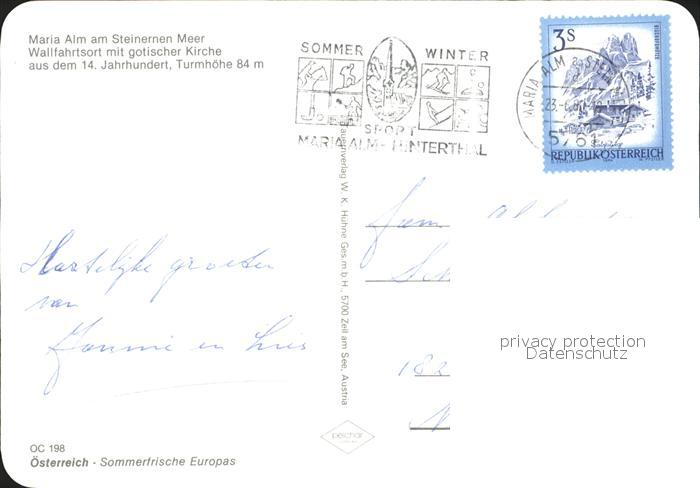 Maria Alm am Steinernen Meer
Wallfahrtsort mit gotischer Kirche
aus dem 14. Jahrhundert, Turmhöhe 84 m
SOMMER WINTER
SPORT
MARIA ALM - HINTERTHAL
MARIA ALM
5761
3S
REPUBLIK ÖSTERREICH
W. K. Hühne Ges.m.b.H., 5700 Zell am See, Austria
Hartelijke groeten
van
Hannie en Kris
Fam
182
privacy protection
Datenschutz
peichar
OC 198
Österreich - Sommerfrische Europas